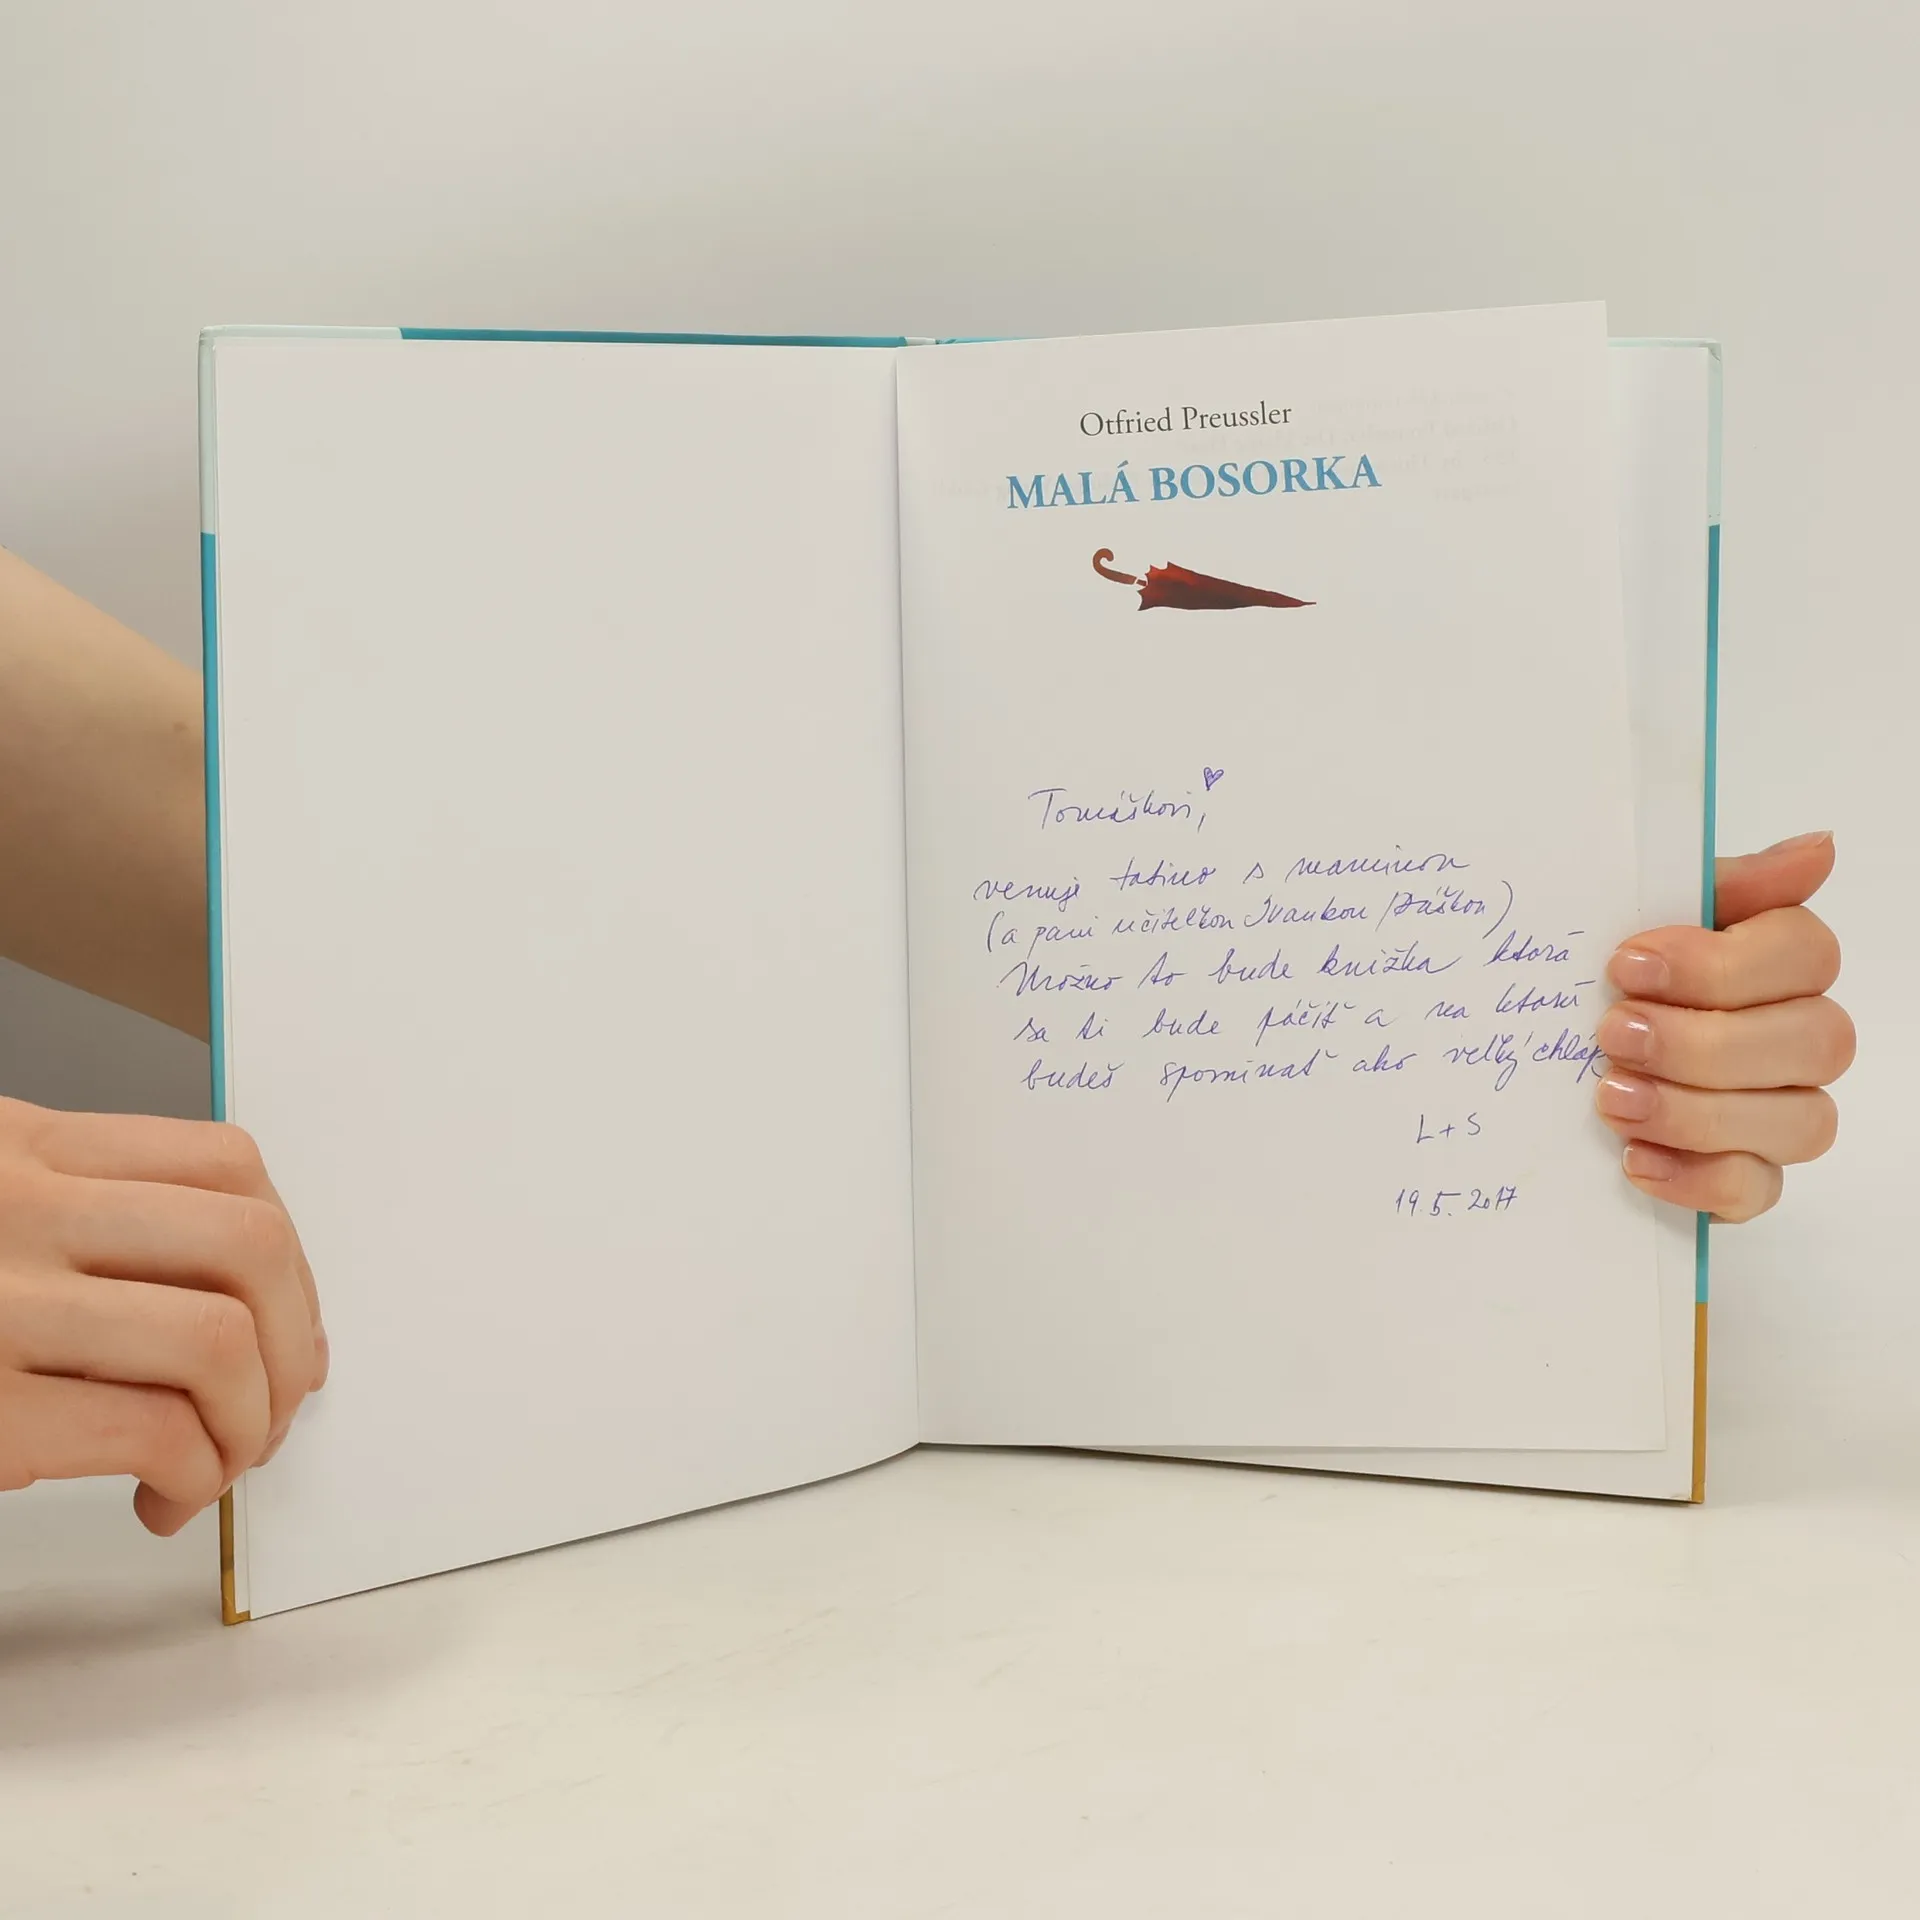 Otfried Preussler
MALÁ BOSORKA
Tomáškovi,
venuje tatino s maminou
(a pani učiteľkou Ivankou
Možno to bude knižka ktorá
sa ti bude páčiť a na ktorú
budeš spomínať ako veľký chlap
L + S
19.5.2017